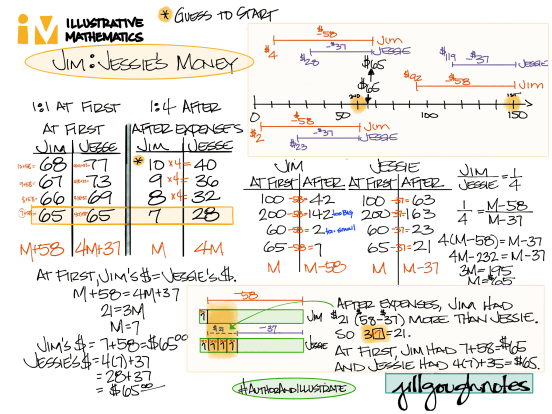 * GUESS TO START
ILLUSTRATIVE
MATHEMATICS
JIM:JESSIE'S MONEY
$-58 JIM
$4 -$37 JESSIE
$28
$65
$119 -$37 JESSIE
$92 -$58 JIM
$65
0 50 100 150
-$58 JIM
$2 -$37 JESSIE
$23
1:1 AT FIRST 1:4 AFTER
AT FIRST AFTER EXPENSES
JIM JESSE JIM JESSE
68 77 * 10 ×4= 40
67 73 9 ×4= 36
66 69 8 ×4= 32
65 65 7 28
M+58 4M+37 M 4M
JIM JESSIE
AT FIRST AFTER AT FIRST AFTER
100 -58= 42 100 -37= 63
200 -58= 142 too BIG 200 -37= 163
60 -58= 2 too small 60 -37= 23
65 -58= 7 65 -37= 21
M M-58 M M-37
JIM/JESSIE = 1/4
1/4 = M-58/M-37
4(M-58) = M-37
4M-232 = M-37
3M = 195
M = $65
AT FIRST, JIM'S $ = JESSIE'S $.
M+58 = 4M+37
21 = 3M
M = 7
JIM'S $ = 7+58 = $65.00
JESSIE'S $ = 4(7)+37
= 28+37
= $65.00
-58
7 JIM
$21 -37
7 7 7 7 JESSIE
AFTER EXPENSES, JIM HAD
$21 ($58-$37) MORE THAN JESSIE.
SO 3 7 = 21.
AT FIRST, JIM HAD 7+58=$65
AND JESSIE HAD 4(7)+35=$65.
#AUTHORANDILLUSTRATE
jillgoughnotes